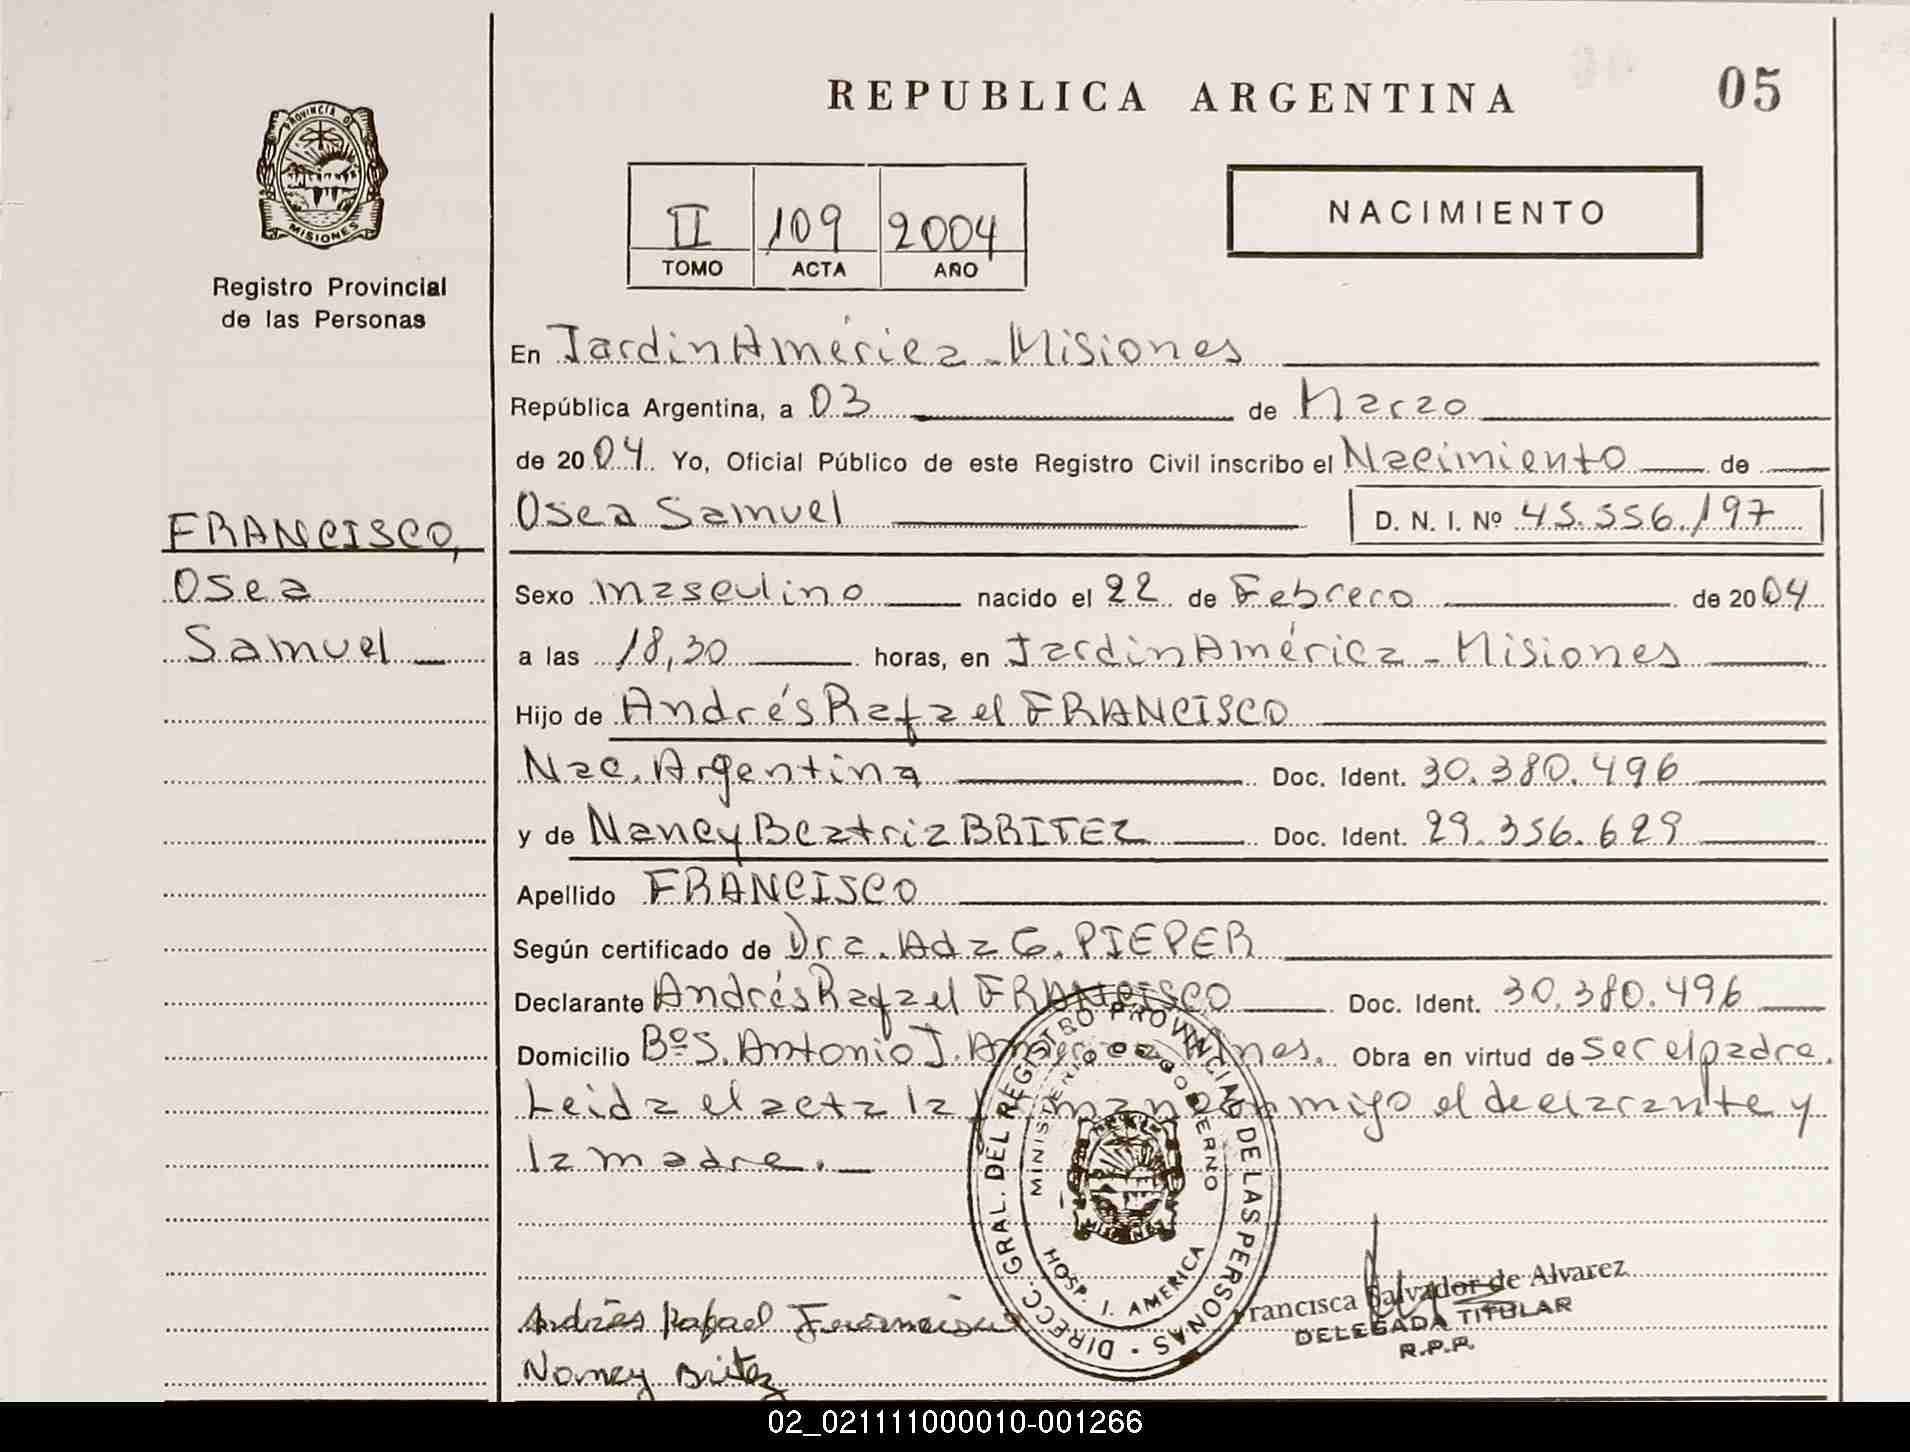 REPUBLICA ARGENTINA
05
PROVINCIA DE
MISIONES
Registro Provincial
de las Personas
II 109 2004
TOMO ACTA AÑO
NACIMIENTO
En Jardin América - Misiones
República Argentina, a 03 de Marzo
de 2004. Yo, Oficial Público de este Registro Civil inscribo el Nacimiento de
Osea Samuel D. N. I. Nº 45.556.197
FRANCISCO,
Osea
Samuel
Sexo masculino nacido el 22 de Febrero de 2004
a las 18,30 horas, en Jardin América - Misiones
Hijo de Andrés Rafael FRANCISCO
Nac. Argentina Doc. Ident. 30.380.496
y de Nancy Beatriz BRITEZ Doc. Ident. 29.356.629
Apellido FRANCISCO
Según certificado de Dra. Ada G. PIEPER
Declarante Andrés Rafael FRANCISCO Doc. Ident. 30.380.496
Domicilio Bº S. Antonio J. América Mnes. Obra en virtud de ser el padre.
Leida el acta la firman conmigo el declarante y
la madre.
DIRECC. GRAL. DEL REGISTRO PROVINCIAL DE LAS PERSONAS
MINISTERIO DE GOBIERNO
MISIONES
HOSP. J. AMERICA
Andrés Rafael Francisco
Nancy Britez
Francisca Salvador de Alvarez
DELEGADA TITULAR
R.P.P.
02_021111000010-001266